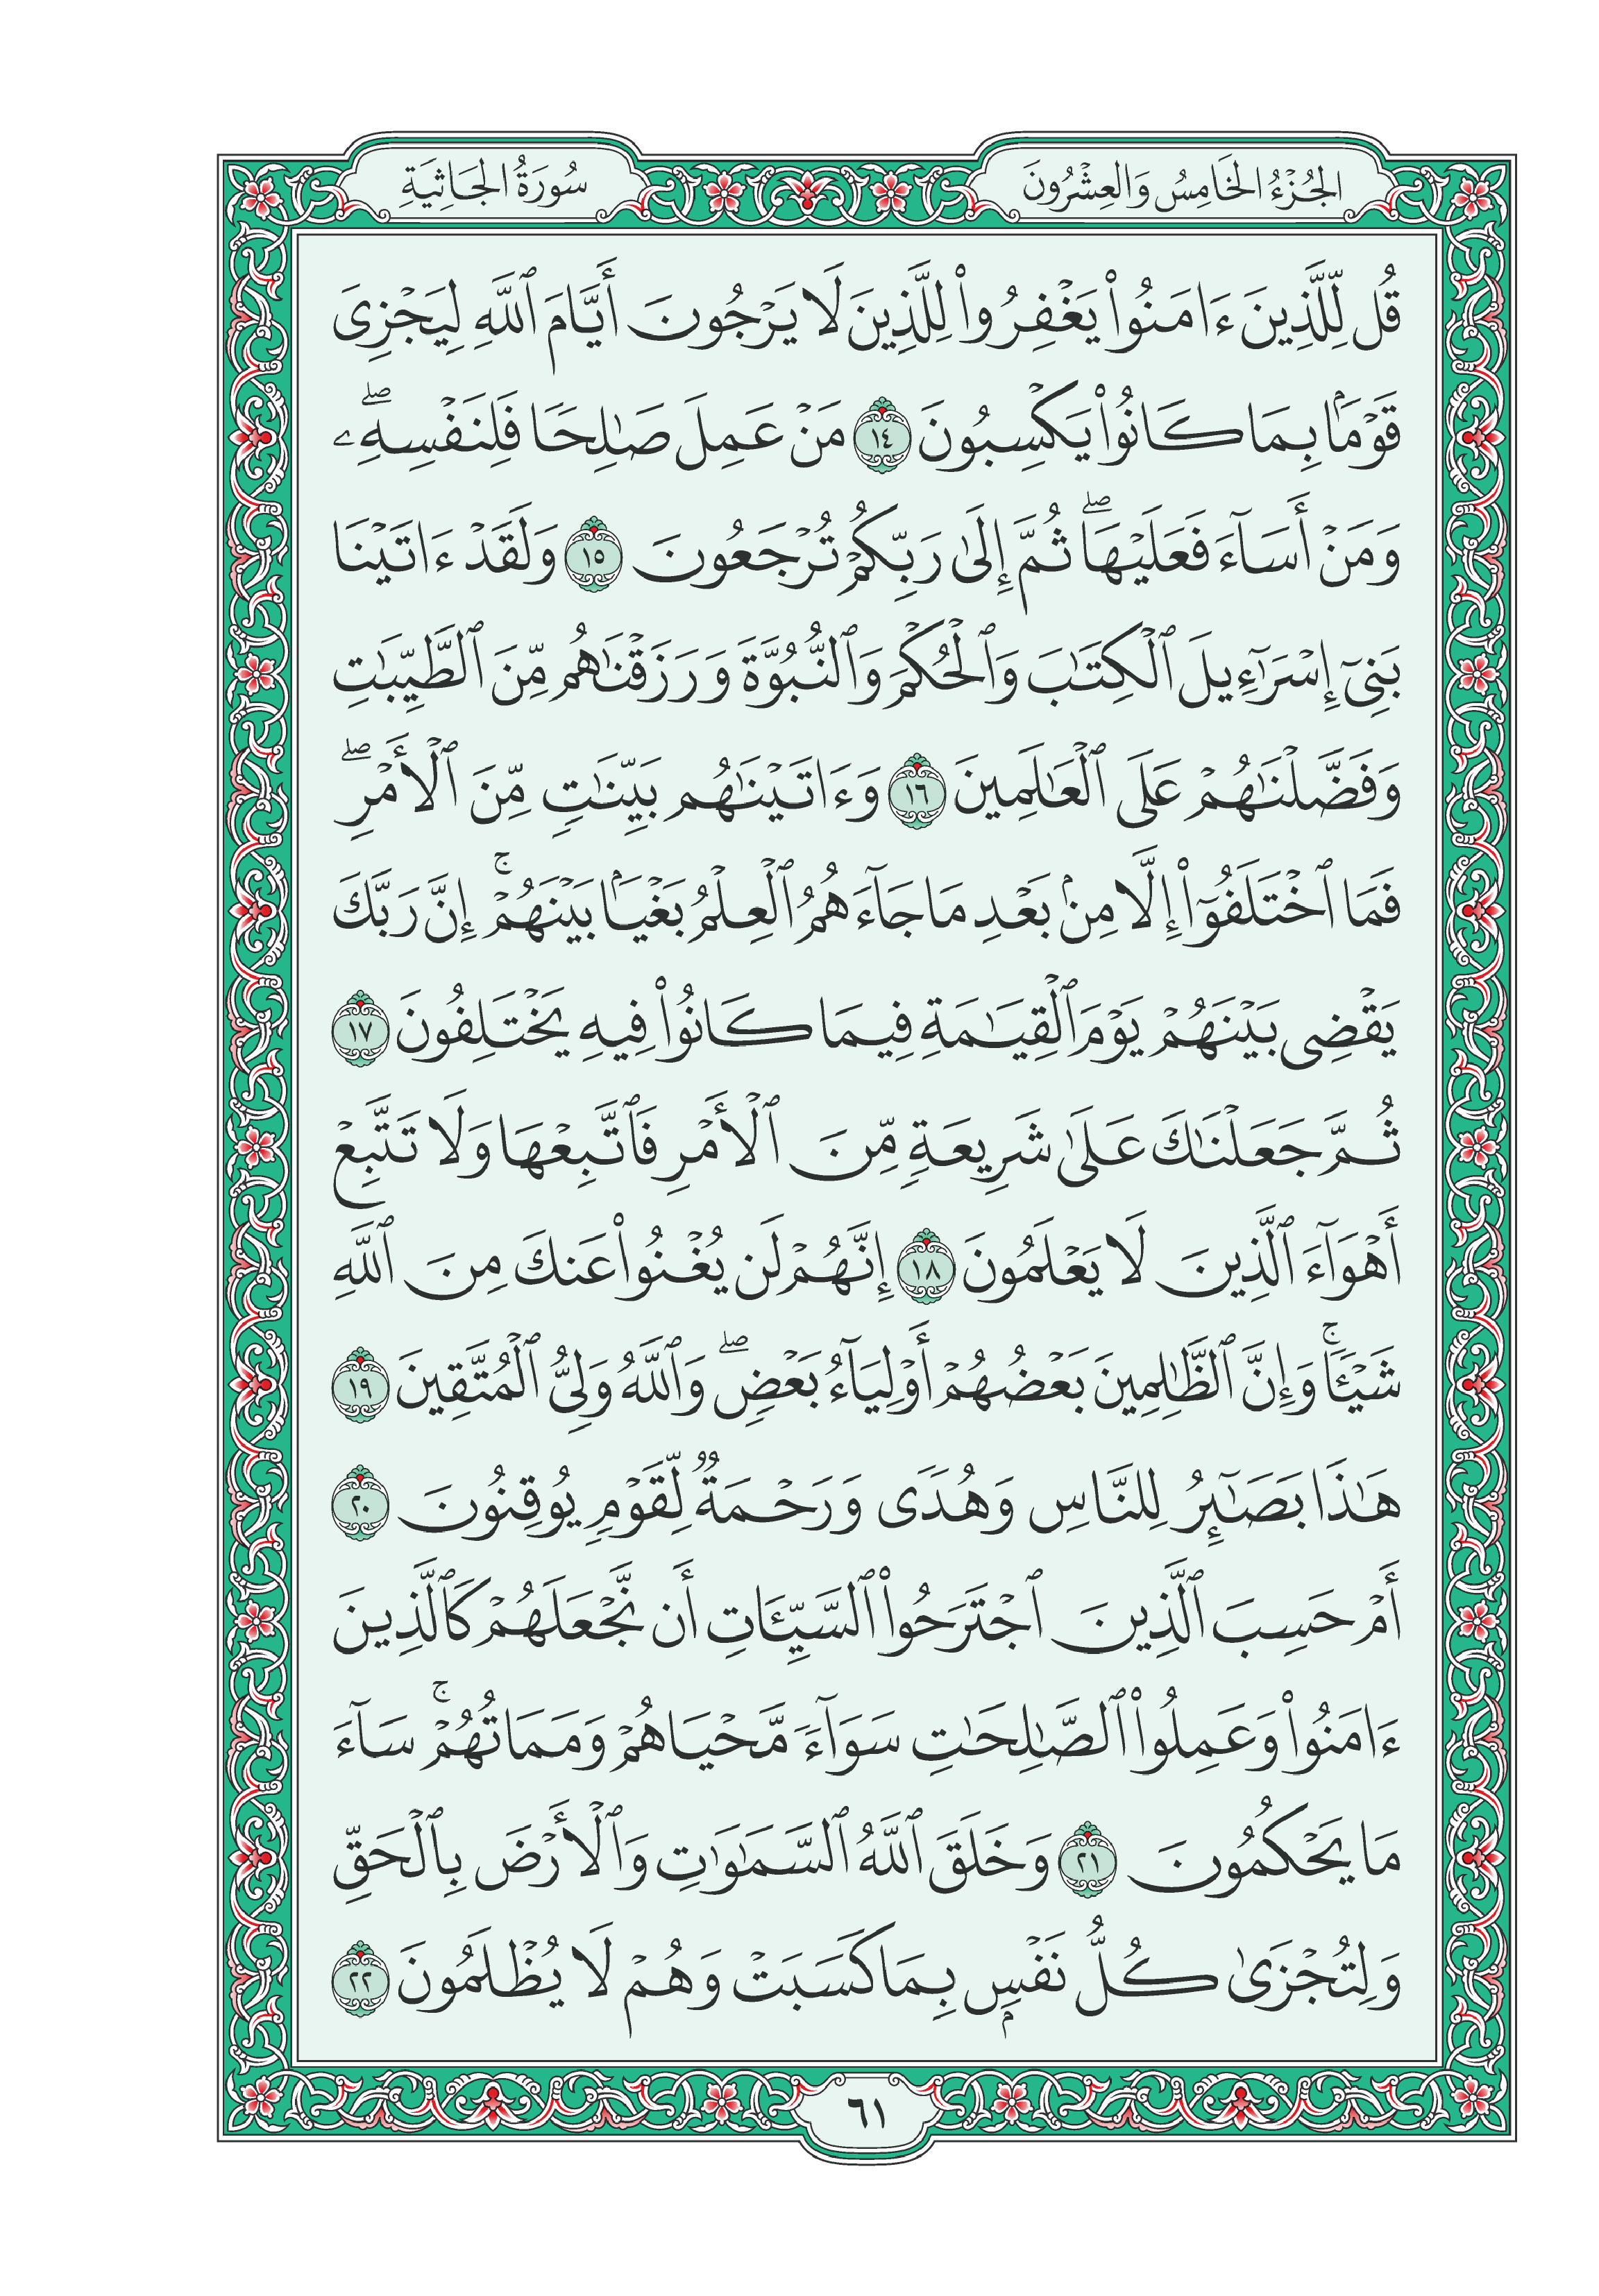 الجُزْءُ الخَامِسُ وَالعِشْرُونَ
سُورَةُ الجَاثِيَةِ
قُل لِّلَّذِينَ ءَامَنُواْ يَغْفِرُواْ لِلَّذِينَ لَا يَرْجُونَ أَيَّامَ ٱللَّهِ لِيَجْزِىَ
قَوْمَۢا بِمَا كَانُواْ يَكْسِبُونَ ١٤ مَنْ عَمِلَ صَٰلِحًا فَلِنَفْسِهِۦۖ
وَمَنْ أَسَآءَ فَعَلَيْهَاۖ ثُمَّ إِلَىٰ رَبِّكُمْ تُرْجَعُونَ ١٥ وَلَقَدْ ءَاتَيْنَا
بَنِىٓ إِسْرَٰٓءِيلَ ٱلْكِتَٰبَ وَٱلْحُكْمَ وَٱلنُّبُوَّةَ وَرَزَقْنَٰهُم مِّنَ ٱلطَّيِّبَٰتِ
وَفَضَّلْنَٰهُمْ عَلَى ٱلْعَٰلَمِينَ ١٦ وَءَاتَيْنَٰهُم بَيِّنَٰتٍ مِّنَ ٱلْأَمْرِۖ
فَمَا ٱخْتَلَفُوٓاْ إِلَّا مِنۢ بَعْدِ مَا جَآءَهُمُ ٱلْعِلْمُ بَغْيَۢا بَيْنَهُمْۚ إِنَّ رَبَّكَ
يَقْضِى بَيْنَهُمْ يَوْمَ ٱلْقِيَٰمَةِ فِيمَا كَانُواْ فِيهِ يَخْتَلِفُونَ ١٧
ثُمَّ جَعَلْنَٰكَ عَلَىٰ شَرِيعَةٍ مِّنَ ٱلْأَمْرِ فَٱتَّبِعْهَا وَلَا تَتَّبِعْ
أَهْوَآءَ ٱلَّذِينَ لَا يَعْلَمُونَ ١٨ إِنَّهُمْ لَن يُغْنُواْ عَنكَ مِنَ ٱللَّهِ
شَيْـًٔاۚ وَإِنَّ ٱلظَّٰلِمِينَ بَعْضُهُمْ أَوْلِيَآءُ بَعْضٍۖ وَٱللَّهُ وَلِىُّ ٱلْمُتَّقِينَ ١٩
هَٰذَا بَصَٰٓئِرُ لِلنَّاسِ وَهُدًى وَرَحْمَةٌ لِّقَوْمٍ يُوقِنُونَ ٢٠
أَمْ حَسِبَ ٱلَّذِينَ ٱجْتَرَحُواْ ٱلسَّيِّـَٔاتِ أَن نَّجْعَلَهُمْ كَٱلَّذِينَ
ءَامَنُواْ وَعَمِلُواْ ٱلصَّٰلِحَٰتِ سَوَآءً مَّحْيَاهُمْ وَمَمَاتُهُمْۚ سَآءَ
مَا يَحْكُمُونَ ٢١ وَخَلَقَ ٱللَّهُ ٱلسَّمَٰوَٰتِ وَٱلْأَرْضَ بِٱلْحَقِّ
وَلِتُجْزَىٰ كُلُّ نَفْسٍۭ بِمَا كَسَبَتْ وَهُمْ لَا يُظْلَمُونَ ٢٢
٦١